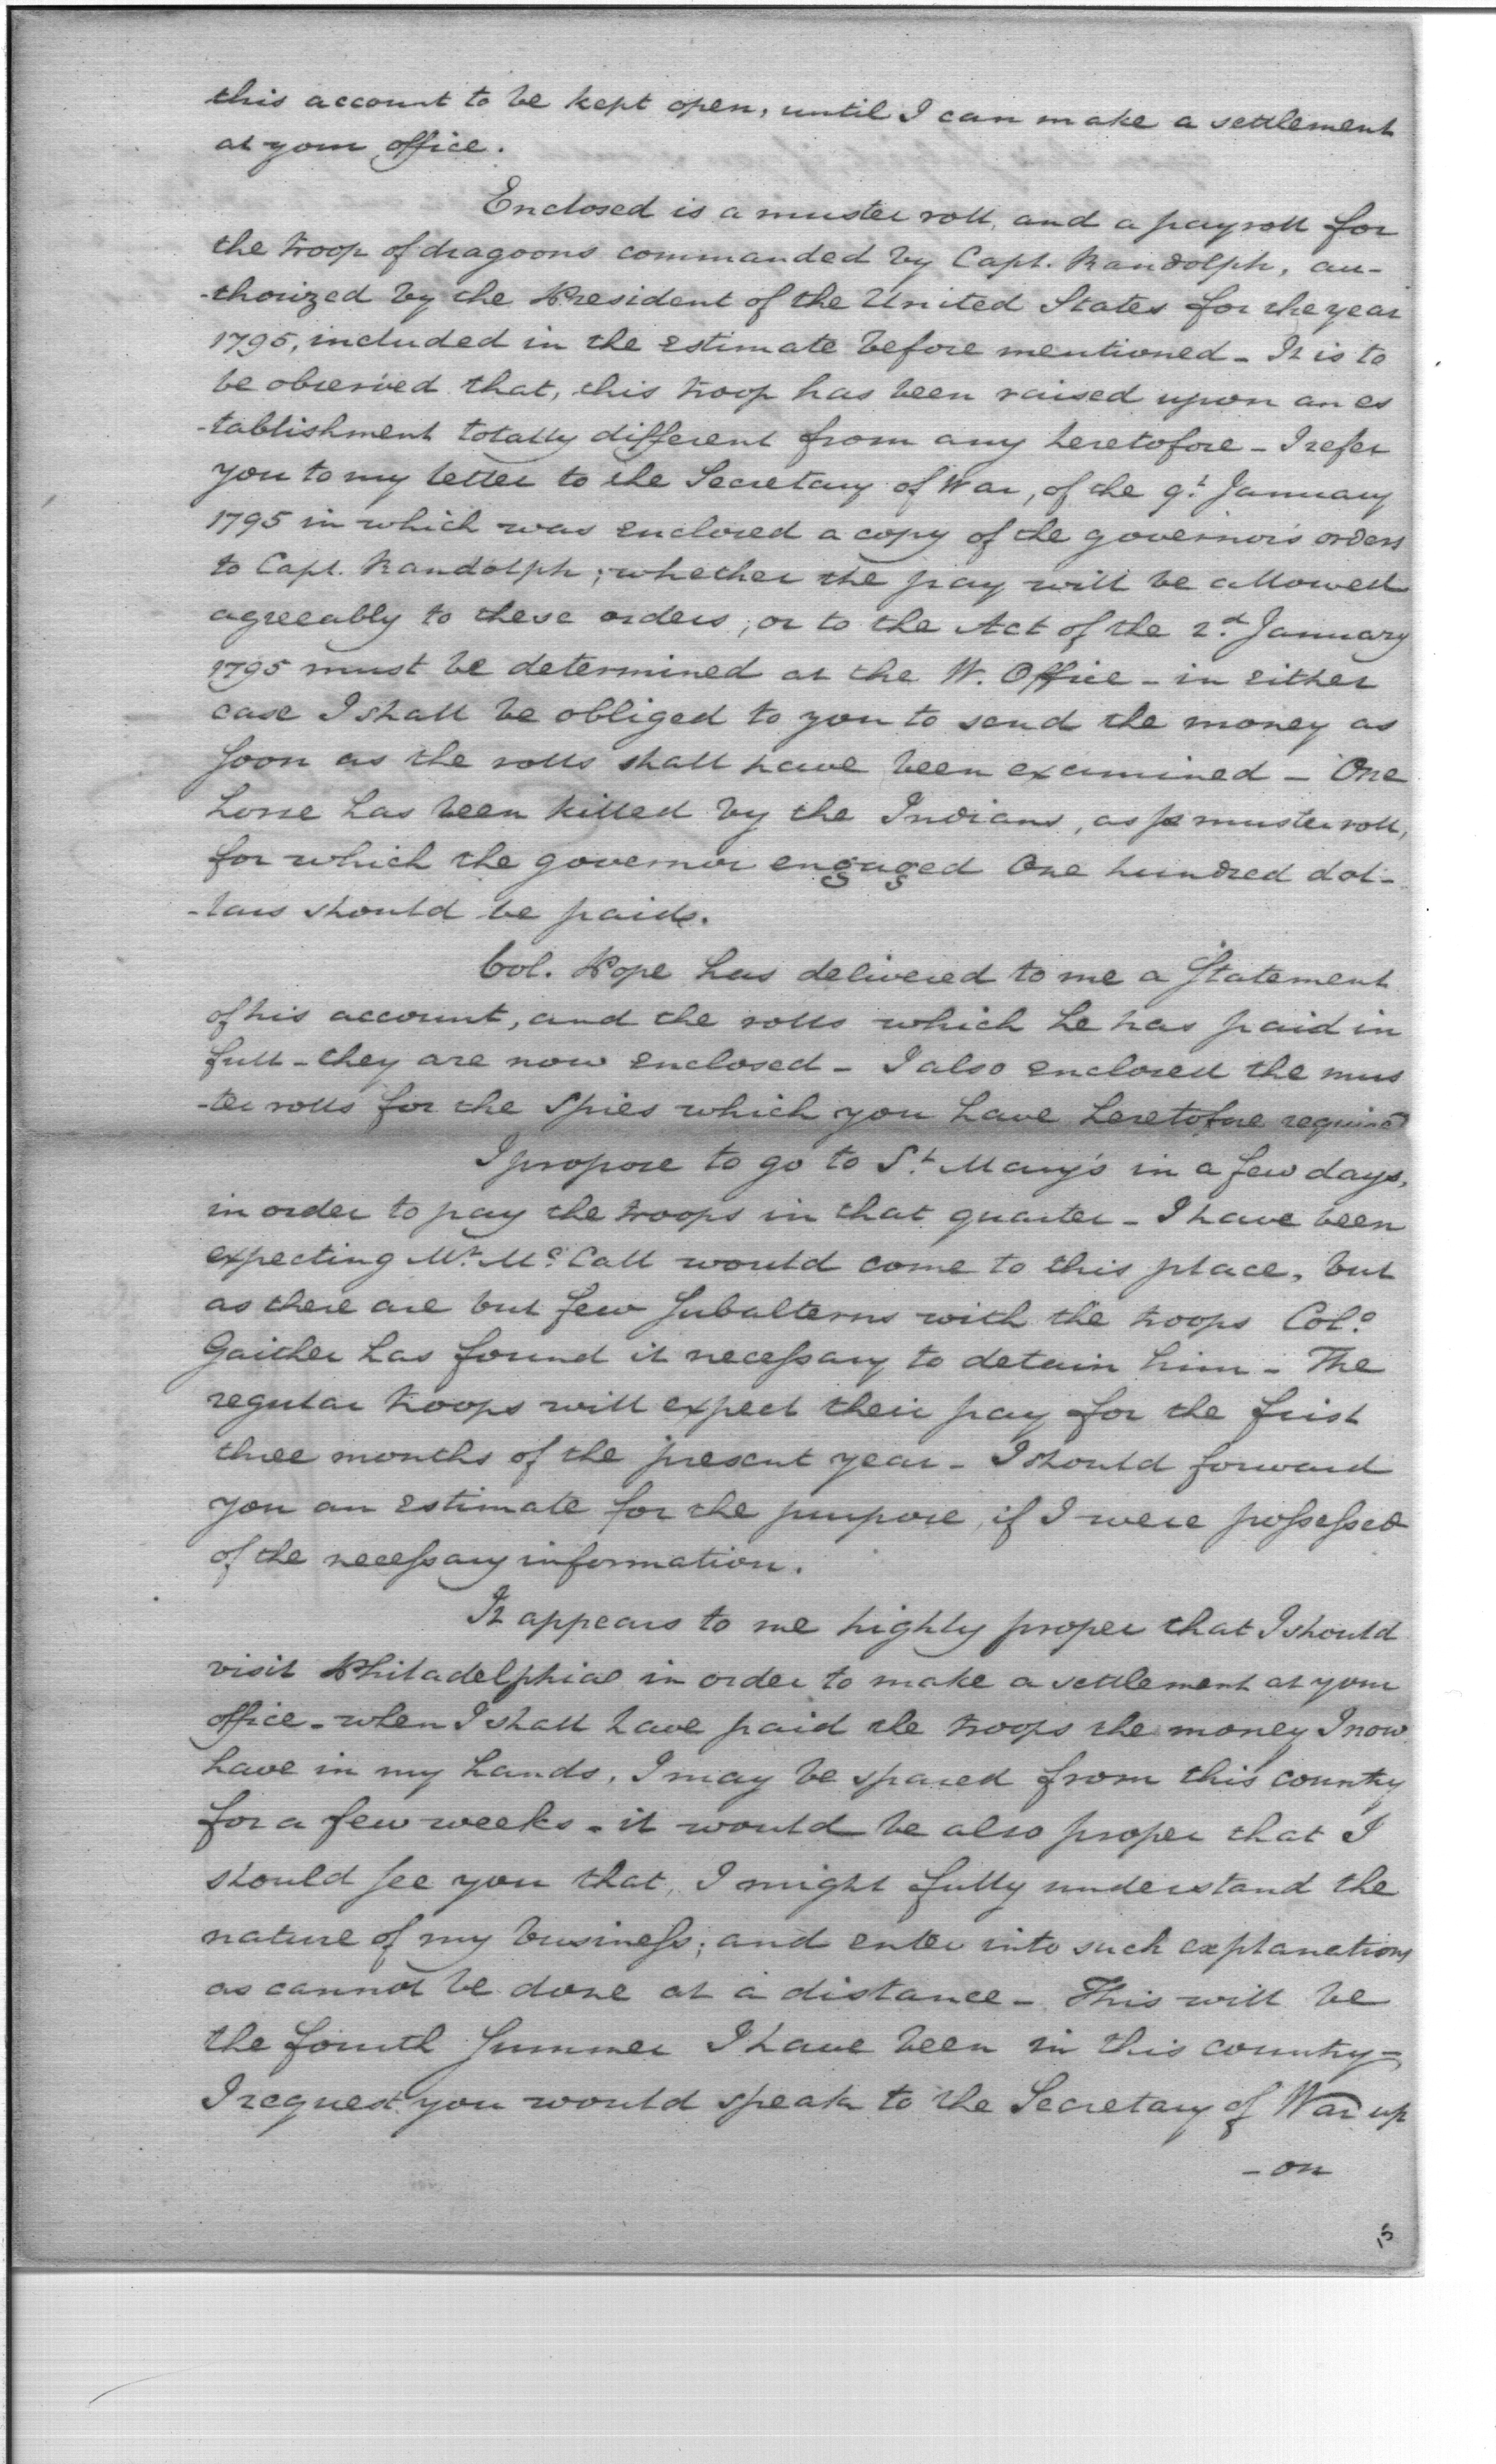 this account to be kept open, until I can make a settlement
at your office.
Enclosed is a muster roll, and a payroll for
the troop of dragoons commanded by Capt. Randolph, au-
-thorized by the President of the United States for the year
1795, included in the estimate before mentioned - It is to
be observed that, this troop has been raised upon an es
-tablishment totally different from any heretofore - I refer
you to my letter to the Secretary of War, of the 9t. January
1795 in which was enclosed a copy of the governor's orders
to Capt. Randolph; whether the pay will be allowed
agreeably to these orders, or to the Act of the 2.d January
1795 must be determined at the W. Office - in either
case I shall be obliged to you to send the money as
soon as the rolls shall have been examined - One
horse has been killed by the Indians, as pr muster roll,
for which the governor engaged One hundred dol-
-lars should be paid.
Col. Pope has delivered to me a Statement
of his account, and the rolls which he has paid in
full - they are now enclosed - I also enclosed the mus
-ter rolls for the Spies which you have heretofore requir'd
I propose to go to St. Mary's in a few days,
in order to pay the troops in that quarter - I have been
expecting Mr. Mc.Call would come to this place, but
as there are but few Subalterns with the troops Colo.
Gaither has found it necessary to detain him - The
regular troops will expect their pay for the first
three months of the present year - I should forward
you an estimate for the purpose, if I were possessed
of the necessary information.
It appears to me highly proper that I should
visit Philadelphia in order to make a settlement at your
office - when I shall have paid the troops the money I now
have in my hands, I may be spared from this country
for a few weeks - it would be also proper that I
should see you that, I might fully understand the
nature of my business; and enter into such explanations
as cannot be done at a distance - This will be
the fourth Summer I have been in this country -
I request you would speak to the Secretary of War up
- on
15